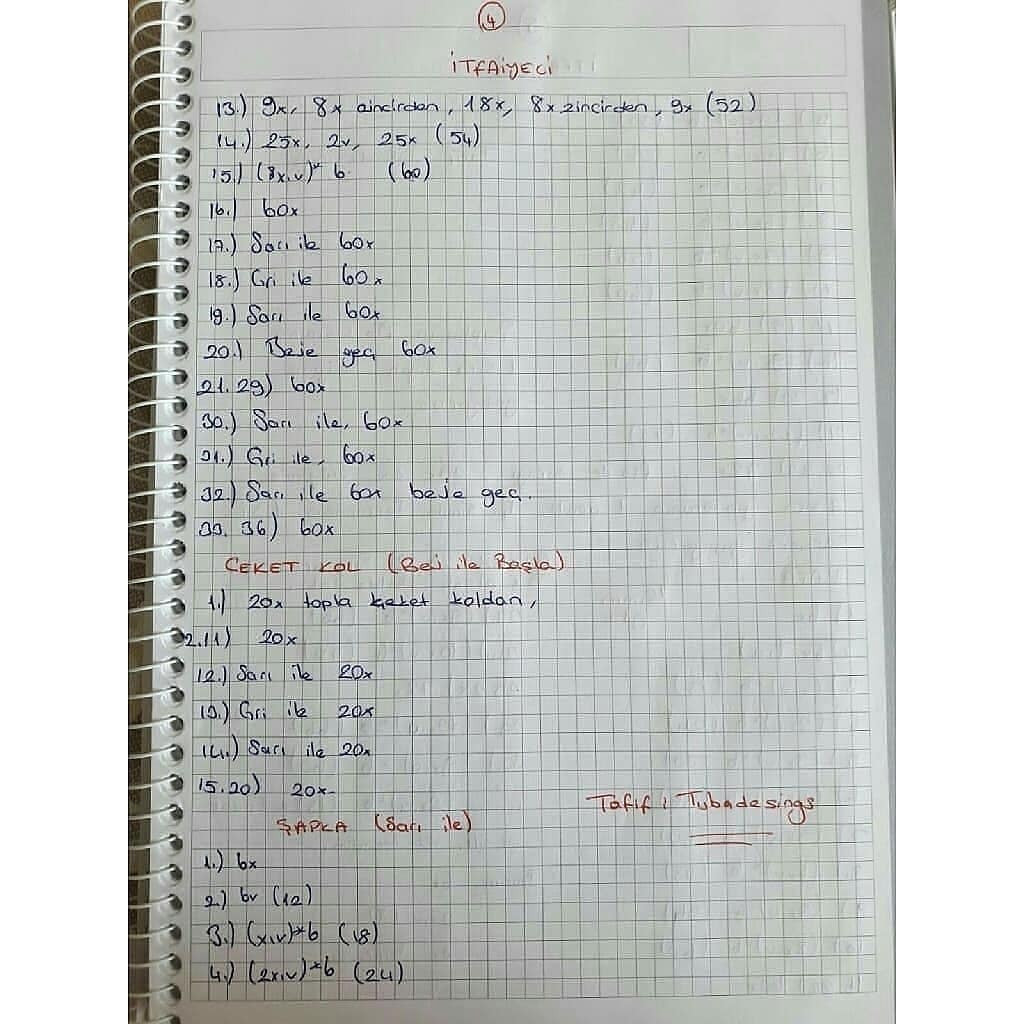 4
İTFAİYECİ
13.) 9x, 8x zincirden, 18x, 8x zincirden, 9x (52)
14.) 25x, 2v, 25x (54)
15.) (8x,v)* 6 (60)
16.) 60x
17.) Sarı ile 60x
18.) Gri ile 60x
19.) Sarı ile 60x
20.) Beje geç 60x
21.29) 60x
30.) Sarı ile, 60x
31.) Gri ile, 60x
32.) Sarı ile 60x beje geç.
33.36) 60x
CEKET KOL (Bej ile Başla)
1.) 20x topla ceket koldan,
2.11) 20x
12.) Sarı ile 20x
13.) Gri ile 20x
14.) Sarı ile 20x
15.20) 20x
Tafif : Tubadesings
ŞAPKA (Sarı ile)
1.) 6x
2.) 6v (12)
3.) (x,v)*6 (18)
4.) (2x,v)*6 (24)